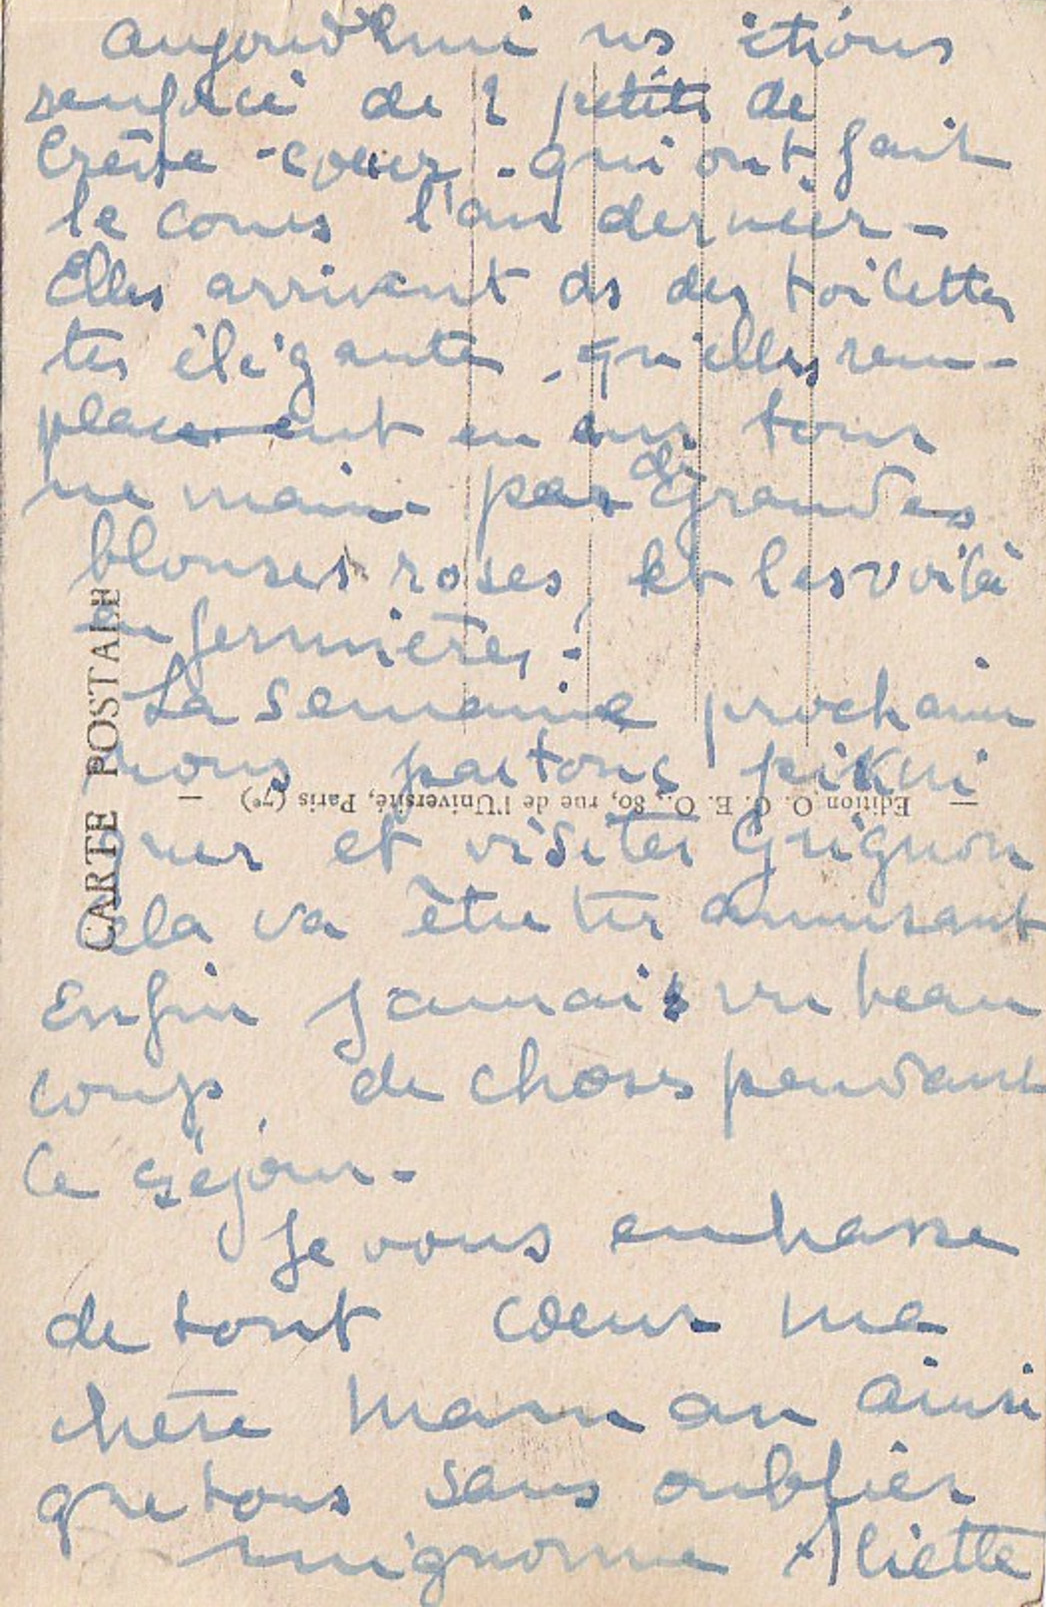 aujourd'hui ns étions
renforcé de 2 petits de
Crève-coeur - qui ont fait
le cours l'an dernier -
Elles arrivent ds des toilettes
tes élégante, qu'elles rem-
placent en un tour
ne main - par de grandes
blouses roses, et les voilà
en fermières !
La semaine prochain
nous partons pikni
quer et visiter Grignon
Cela va être très amusant
Enfin j'aurai vu beau
coup de choses pendant
ce séjour -
Je vous embrasse
de tout coeur ma
chère maman ainsi
que tous sans oublier
mignonne Aliette
CARTE POSTALE
— Edition O. C. E. O., 80, rue de l'Université, Paris (7e) —